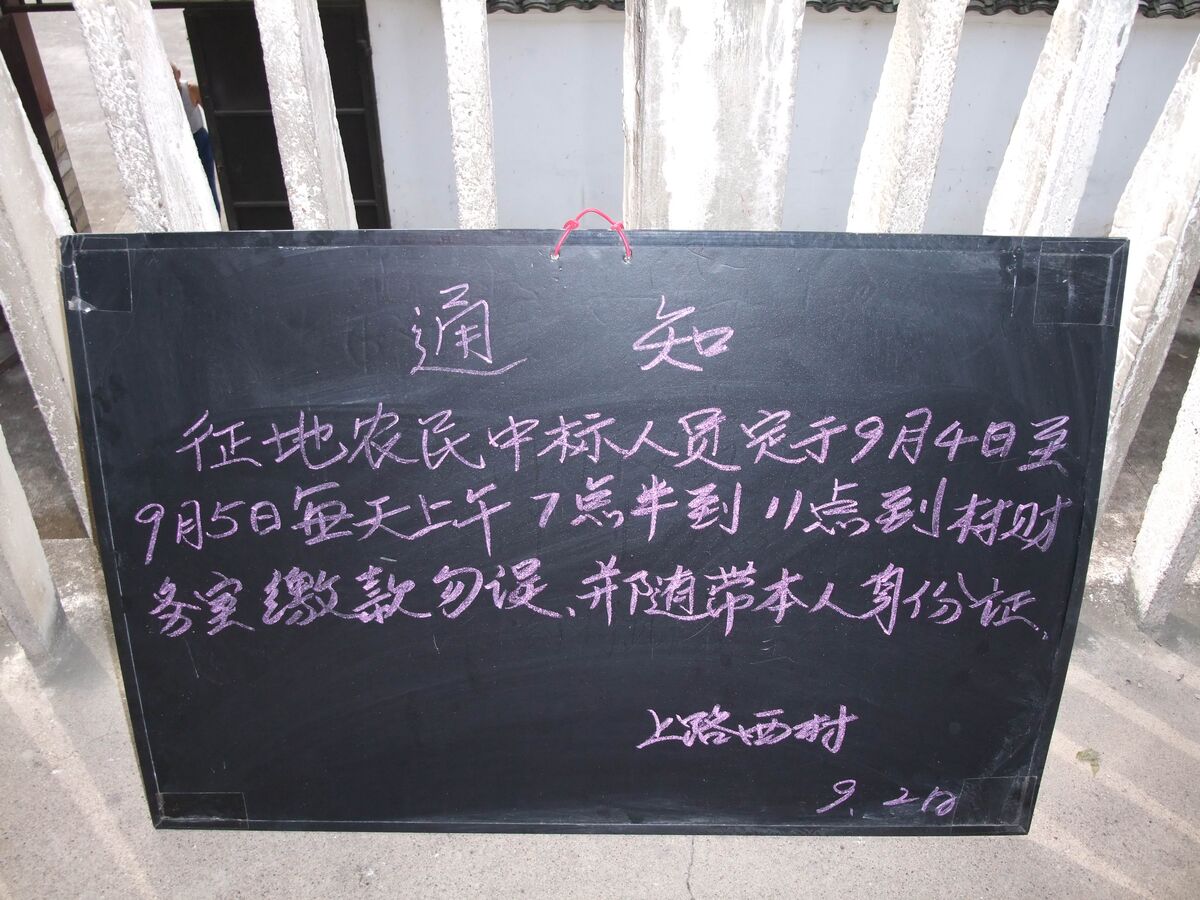 通知
征地农民中标人员定于9月4日至
9月5日每天上午7点半到11点到村财
务室缴款勿误、并随带本人身份证.
上路西村
9.2日